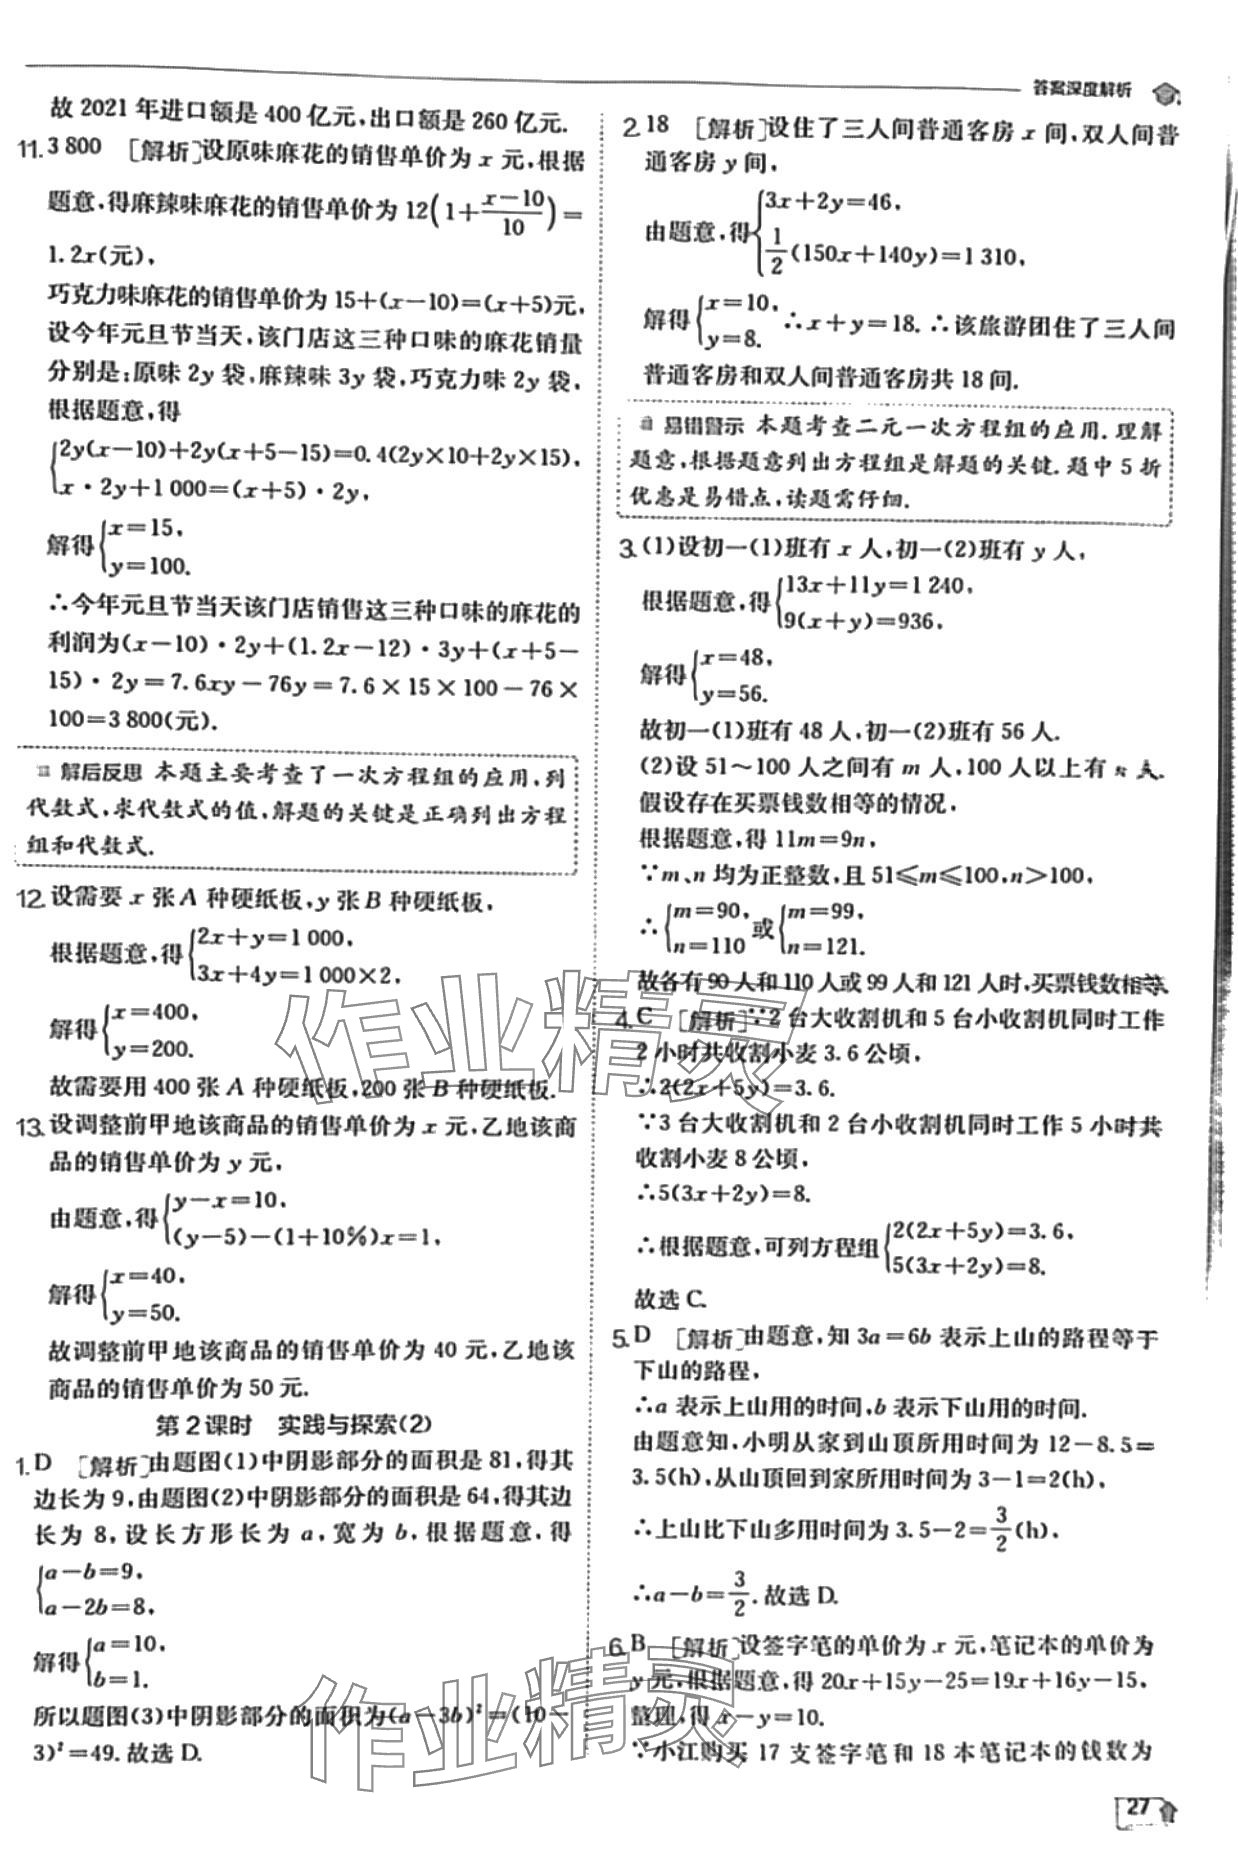 答案深度解析
故 2021 年进口额是 400 亿元,出口额是 260 亿元.
11. 3 800 [解析]设原味麻花的销售单价为 x 元,根据
题意,得麻辣味麻花的销售单价为 12(1+(x-10)/10)=
1.2x(元),
巧克力味麻花的销售单价为 15+(x-10)=(x+5)元,
设今年元旦节当天,该门店这三种口味的麻花销量
分别是:原味 2y 袋,麻辣味 3y 袋,巧克力味 2y 袋,
根据题意,得
{2y(x-10)+2y(x+5-15)=0.4(2y×10+2y×15),
x·2y+1 000=(x+5)·2y,
解得{x=15,
y=100.
∴今年元旦节当天该门店销售这三种口味的麻花的
利润为(x-10)·2y+(1.2x-12)·3y+(x+5-
15)·2y=7.6xy-76y=7.6×15×100-76×
100=3 800(元).
解后反思 本题主要考查了一次方程组的应用,列
代数式,求代数式的值,解题的关键是正确列出方程
组和代数式.
12. 设需要 x 张 A 种硬纸板,y 张 B 种硬纸板,
根据题意,得{2x+y=1 000,
3x+4y=1 000×2,
解得{x=400,
y=200.
故需要用 400 张 A 种硬纸板,200 张 B 种硬纸板.
13. 设调整前甲地该商品的销售单价为 x 元,乙地该商
品的销售单价为 y 元,
由题意,得{y-x=10,
(y-5)-(1+10%)x=1,
解得{x=40,
y=50.
故调整前甲地该商品的销售单价为 40 元,乙地该
商品的销售单价为 50 元.
第 2 课时 实践与探索(2)
1. D [解析]由题图(1)中阴影部分的面积是 81,得其
边长为 9,由题图(2)中阴影部分的面积是 64,得其边
长为 8,设长方形长为 a,宽为 b,根据题意,得
{a-b=9,
a-2b=8,
解得{a=10,
b=1.
所以题图(3)中阴影部分的面积为(a-3b)²=(10-
3)²=49.故选 D.
2. 18 [解析]设住了三人间普通客房 x 间,双人间普
通客房 y 间,
由题意,得{3x+2y=46,
1/2(150x+140y)=1 310,
解得{x=10,
y=8.
∴x+y=18.∴该旅游团住了三人间
普通客房和双人间普通客房共 18 间.
易错警示 本题考查二元一次方程组的应用.理解
题意,根据题意列出方程组是解题的关键.题中 5 折
优惠是易错点,读题需仔细.
3. (1)设初一(1)班有 x 人,初一(2)班有 y 人,
根据题意,得{13x+11y=1 240,
9(x+y)=936,
解得{x=48,
y=56.
故初一(1)班有 48 人,初一(2)班有 56 人.
(2)设 51~100 人之间有 m 人,100 人以上有 n 人.
假设存在买票钱数相等的情况,
根据题意,得 11m=9n,
∵m、n 均为正整数,且 51≤m≤100,n>100,
∴{m=90,
n=110
或{m=99,
n=121.
故各有 90 人和 110 人或 99 人和 121 人时,买票钱数相等.
4. C [解析]∵2 台大收割机和 5 台小收割机同时工作
2 小时共收割小麦 3.6 公顷,
∴2(2x+5y)=3.6.
∵3 台大收割机和 2 台小收割机同时工作 5 小时共
收割小麦 8 公顷,
∴5(3x+2y)=8.
∴根据题意,可列方程组{2(2x+5y)=3.6,
5(3x+2y)=8.
故选 C.
5. D [解析]由题意,知 3a=6b 表示上山的路程等于
下山的路程,
∴a 表示上山用的时间,b 表示下山用的时间.
由题意知,小明从家到山顶所用时间为 12-8.5=
3.5(h),从山顶回到家所用时间为 3-1=2(h),
∴上山比下山多用时间为 3.5-2=3/2(h),
∴a-b=3/2.故选 D.
6. B [解析]设签字笔的单价为 x 元,笔记本的单价为
y 元,根据题意,得 20x+15y-25=19x+16y-15,
整理,得 x-y=10.
∵小江购买 17 支签字笔和 18 本笔记本的钱数为
27
作业精灵
作业精灵